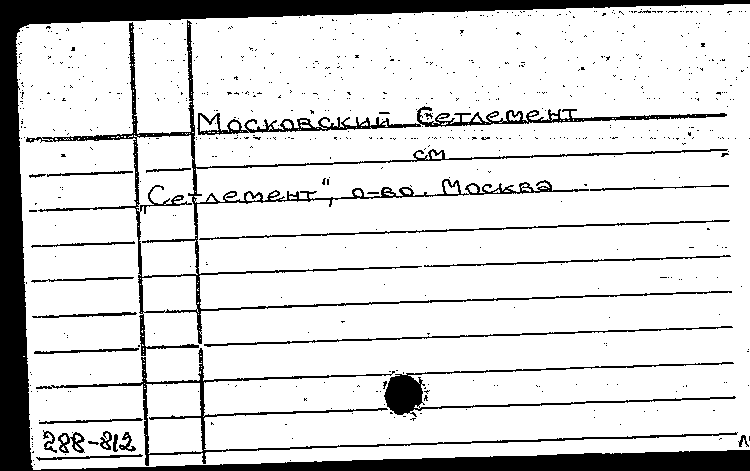 Московский Сетлемент
см
„Сетлемент“, о-во. Москва
288-812